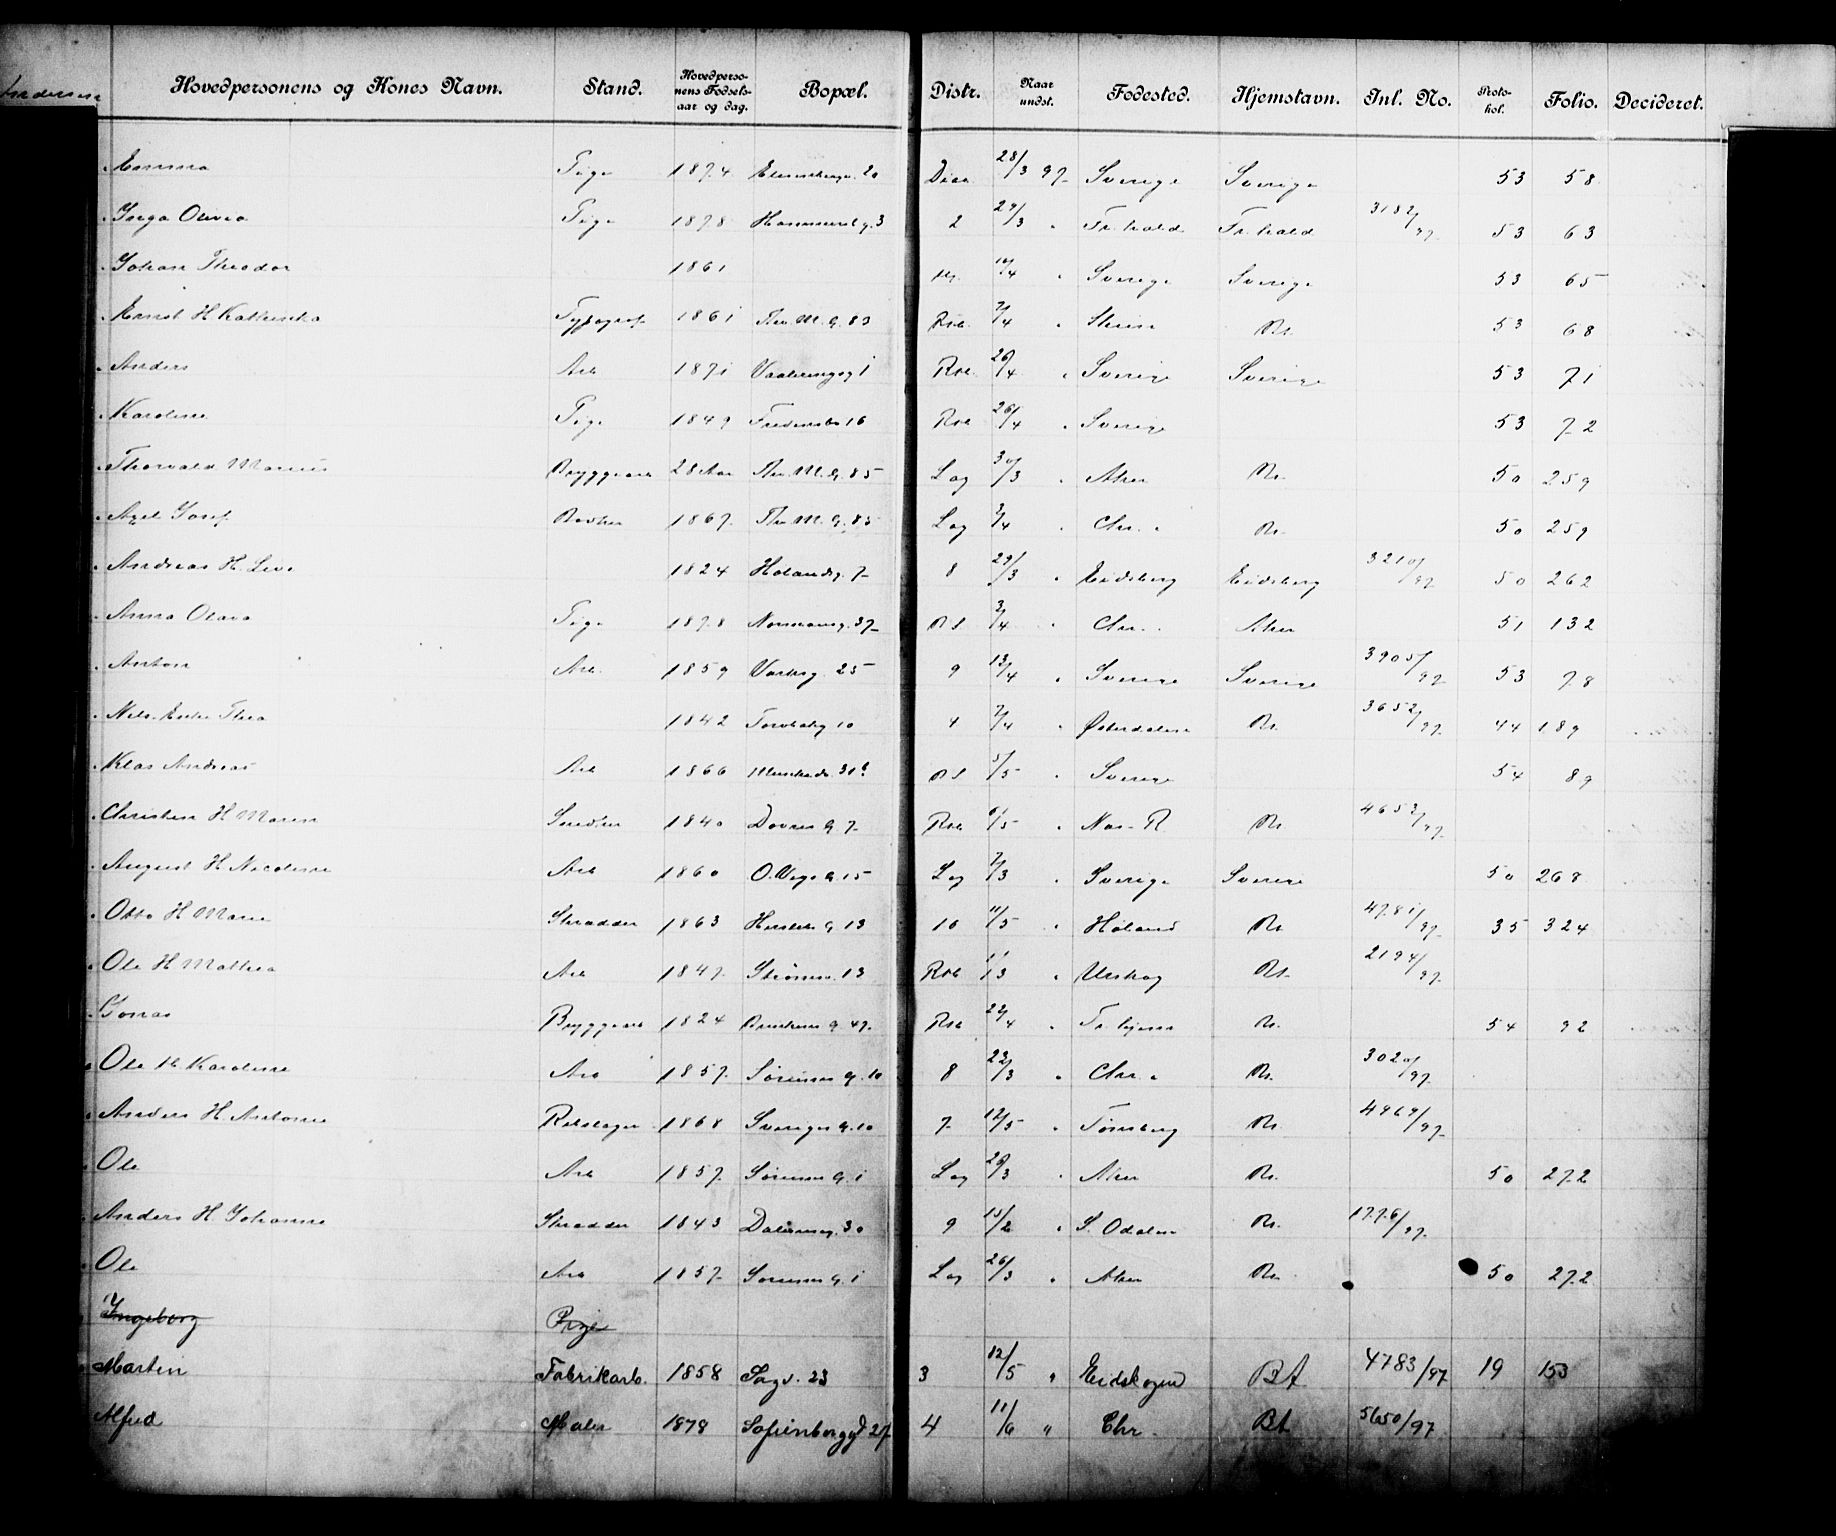 Andersen
Hovedpersonens og Kones Navn. Stand. Hovedpersonens Fødselsaar og dag. Bopæl. Distr. Naar undst. Fødested. Hjemstavn. Inl. No. Protokol. Folio. Decideret.
Emma Pige 1874 20 28/3 97 Sverige Sverige 53 58
Inga Olivia Pige 1878 3 2 29/3 " Fr.hald Fr.hald 3182/97 53 63
Johan Theodor 1861 /4 " Sverige Sverige 53 65
Ernst H Typograf 1861 Thv. M. G. 83 Rob 7/4 " Skien Bt. 53 68
Anders Arb 1871 Vaalerengg 1 Rob. 26/4 " Sverige Sverige 53 71
Karoline Pige 1849 Fredensbo 16 Rob 26/4 " Sverige 53 72
Thorvald Marius Bryggearb 28 Aar Thv. M. G. 85 Lag 30/3 " Aker Bt. 50 259
Axel Josef 1867 Thv. M. G. 85 Lag 2/4 " Chr. " Bt. 50 259
Andreas H. 1824 Holandsg. 7 8 29/3 " Eidsberg Eidsberg 3210/97 50 262
Anna Olava Pige 1878 Normannsg. 37 3/4 " Chr. Aker 51 132
Anton Arb. 1859 25 9 13/4 " Sverige Sverige 3905/97 53 78
Nils Thea 1842 10 4 7/4 " Østerdalen Bt. 3652/97 44 189
Klas Andreas Arb 1866 5/5 " Sverige 54 89
Christen H Maren Snedker 1840 Dovres G 7 Rob 6/5 " Næs - R. Bt. 4653/97
August H Nicoline Arb 1860 O. Vogs G. 15 Lag 7/3 " Sverige Sverige 50 268
Otto H Marie Skrædder 1863 Herslebs G 13 10 11/5 " Høland Bt 4781/97 35 324
Ole H Mathea Arb 1847 Strømsv. 13 Rob 11/3 " Urskog Bt. 2194/97
Jonas Bryggearb 1824 G 47 Rob 22/4 " Tr.hjem Bt. 54 92
Ole H. Karoline Arb 1857 Sørensens G. 10 8 22/3 " Chr. " Bt. 3020/97
Anders H. Antonie Rebslager 1868 Sveriges G. 10 7 12/5 " Tønsberg Bt. 4969/97
Ole Arb 1857 Sørensens G. 1 Lag 26/3 " Aker Bt. 50 272
Anders H. Johanne Skrædder 1843 Dalensveg. 30 9 15/2 " S. Odalen Bt. 1776/97
Ole Arb 1857 Sørensens G. 1 Lag 26/3 " Aker Bt. 50 272
Ingeborg Pige
Martin Fabrikarb. 1858 Sagv. 23 3 12/5 " Eidskogen Bt 4783/97 19 153
Alfred Maler 1878 Sofienberggd 27 4 11/6 " Chr. Bt 5650/97